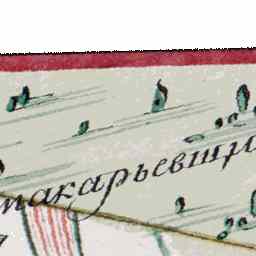 макарьевщи